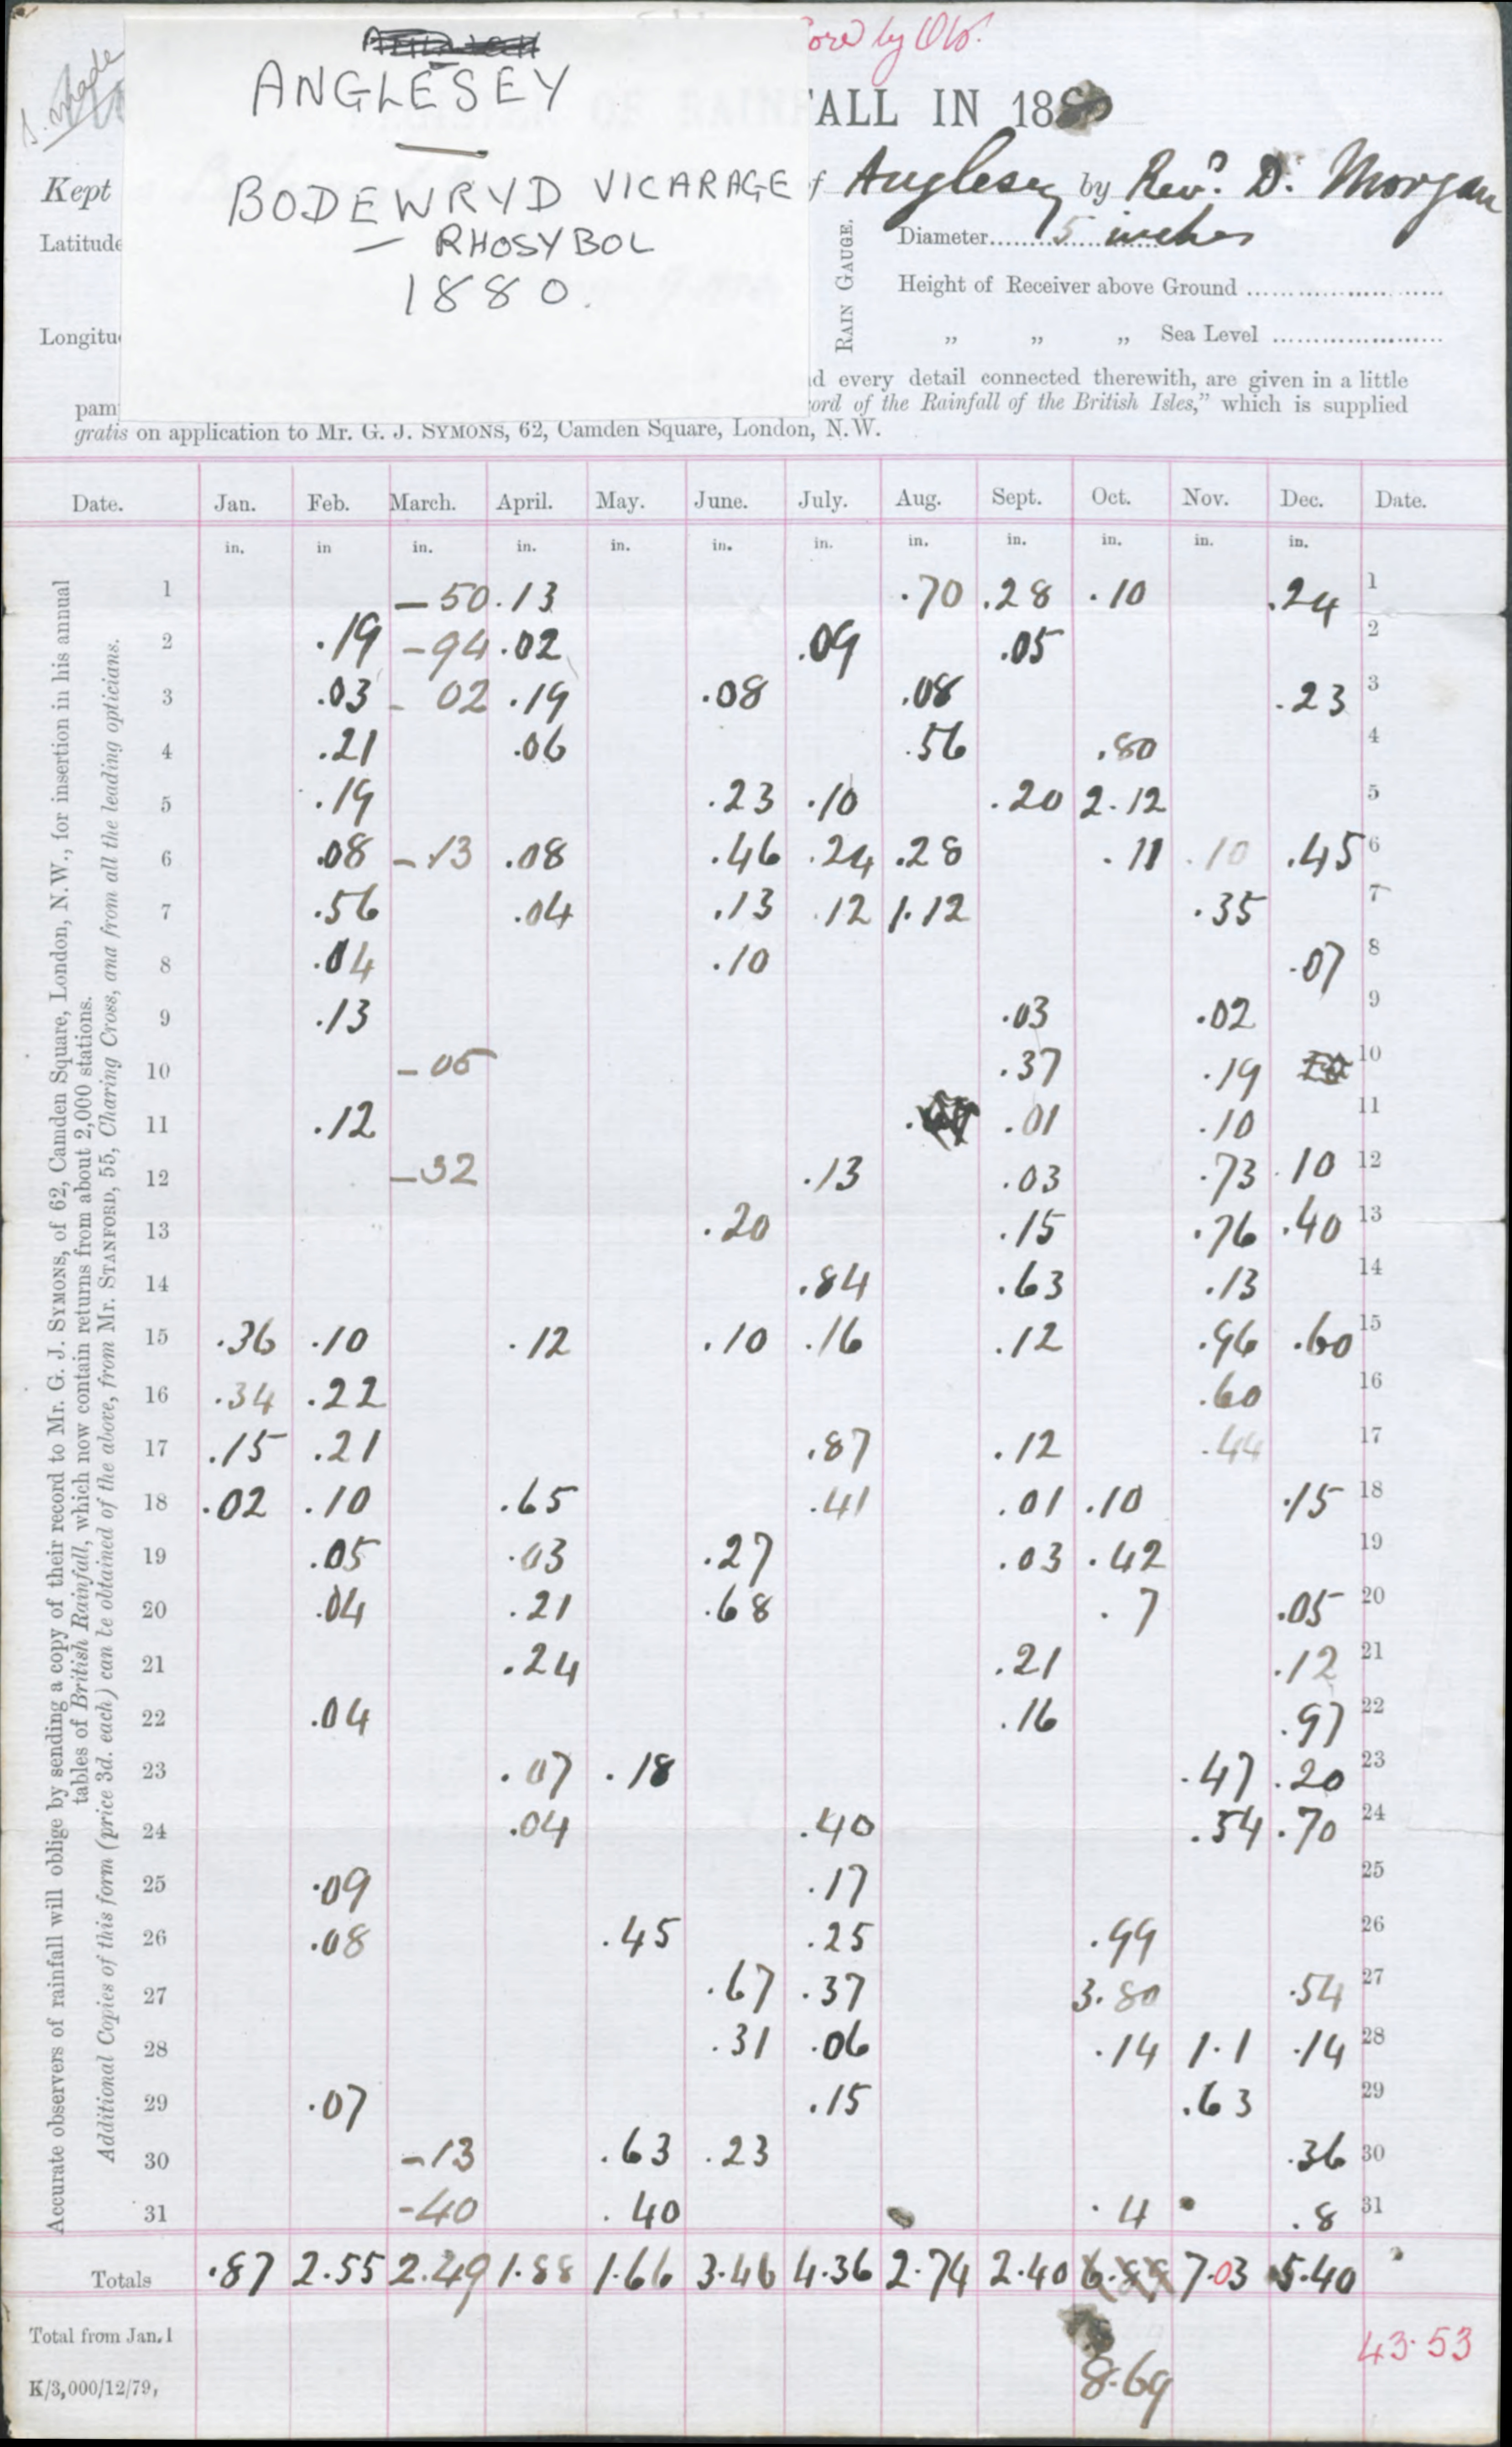 ore by Ob.
ANGLESEY
BODEWRYD VICARAGE
— RHOSYBOL
1880.
ALL IN 188
Kept
f Anglesey by Revd. D. Morgan
Latitude
Longitu
RAIN GAUGE.
Diameter........5 inches
Height of Receiver above Ground ........................
„ „ „ Sea Level .....................
d every detail connected therewith, are given in a little
pam
ord of the Rainfall of the British Isles," which is supplied
gratis on application to Mr. G. J. SYMONS, 62, Camden Square, London, N.W.
Accurate observers of rainfall will oblige by sending a copy of their record to Mr. G. J. SYMONS, of 62, Camden Square, London, N.W., for insertion in his annual
tables of British Rainfall, which now contain returns from about 2,000 stations.
Additional Copies of this form (price 3d. each) can be obtained of the above, from Mr. STANFORD, 55, Charing Cross, and from all the leading opticians.
Date. Jan. Feb. March. April. May. June. July. Aug. Sept. Oct. Nov. Dec. Date.
in. in in. in. in. in. in. in. in. in. in. in.
1 —50 .13 .70 .28 .10 .24 1
2 .19 —94 .02 .09 .05 2
3 .03 – 02 .19 .08 .08 .23 3
4 .21 .06 .56 .80 4
5 .19 .23 .10 .20 2.12 5
6 .08 –13 .08 .46 .24 .28 .11 .10 .45 6
7 .56 .04 .13 .12 1.12 .35 7
8 .04 .10 .07 8
9 .13 .03 .02 9
10 –05 .37 .19 10
11 .12 .01 .10 11
12 –32 .13 .03 .73 .10 12
13 .20 .15 .76 .40 13
14 .84 .63 .13 14
15 .36 .10 .12 .10 .16 .12 .96 .60 15
16 .34 .22 .60 16
17 .15 .21 .87 .12 .44 17
18 .02 .10 .65 .41 .01 .10 .15 18
19 .05 .03 .27 .03 .42 19
20 .04 .21 .68 .7 .05 20
21 .24 .21 .12 21
22 .04 .16 .97 22
23 .07 .18 .47 .20 23
24 .04 .40 .54 .70 24
25 .09 .17 25
26 .08 .45 .25 .99 26
27 .67 .37 3.80 .54 27
28 .31 .06 .14 1.1 .14 28
29 .07 .15 .63 29
30 –13 .63 .23 .36 30
31 –40 .40 .4 .8 31
Totals .87 2.55 2.49 1.88 1.66 3.46 4.36 2.74 2.40 6.89 7.03 5.40
Total from Jan. 1 43.53
8.69
K/3,000/12/79,